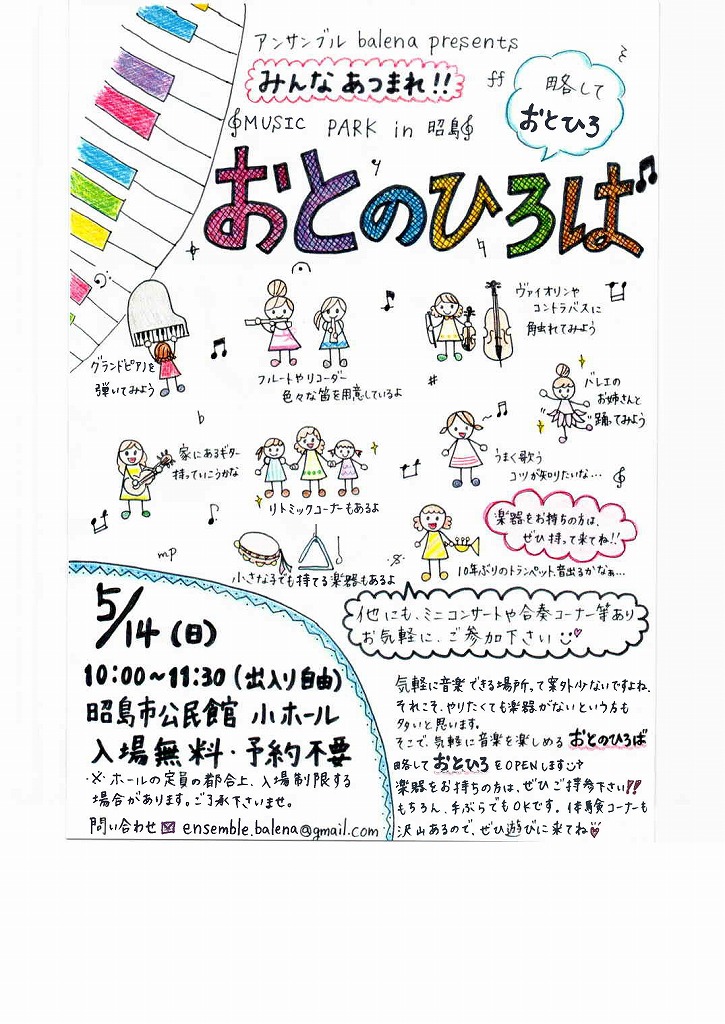 アンサンブル balena presents
みんなあつまれ!!
MUSIC PARK in 昭島
ff
略して
おとひろ
おとのひろば
グランドピアノを
弾いてみよう
フルートやリコーダー
色々な笛を用意しているよ
ヴァイオリンや
コントラバスに
触れてみよう
バレエの
お姉さんと
踊ってみよう
家にあるギター
持っていこうかな
リトミックコーナーもあるよ
うまく歌う
コツが知りたいな…
小さな子でも持てる楽器もあるよ
楽器をお持ちの方は、
ぜひ持って来てね!!
10年ぶりのトランペット、音出るかなぁ…
mp
他にも、ミニコンサートや合奏コーナー等あり
お気軽に、ご参加下さい
5/14(日)
10:00~11:30(出入り自由)
昭島市公民館 小ホール
入場無料・予約不要
※ホールの定員の都合上、入場制限する
場合があります。ご了承下さいませ。
問い合わせ ensemble.balena@gmail.com
気軽に音楽できる場所って案外少ないですよね。
それこそ、やりたくても楽器がないという方も
多いと思います。
そこで、気軽に音楽を楽しめる おとのひろば
略して おとひろ をOPENします
楽器をお持ちの方は、ぜひご持参下さい!!
もちろん、手ぶらでもOKです。体験コーナーも
沢山あるので、ぜひ遊びに来てね